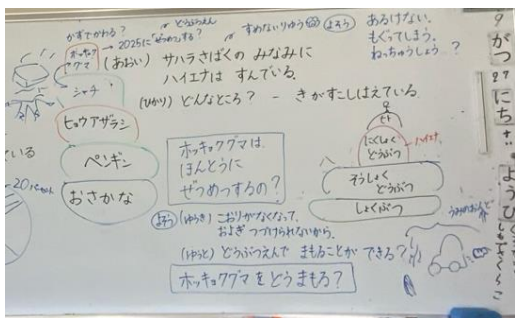 かずでかわる?
どうぶつえん
→2025に「ぜつめつ」する?
すめないりゆう
よそう
あるけない。
もぐってしまう。
ねっちゅうしょう?
ホッキョク
グマ
(あおい) サハラさばくの みなみに
ハイエナは すんでいる。
シャチ
(ひかり) どんなところ? - きがすこしはえている。
ヒョウアザラシ
ペンギン
おさかな
いる
ホッキョクグマは、
ほんとうに
ぜつめつするの?
ヒト
にくしょく
どうぶつ
ハイエナ
そうしょく
どうぶつ
しょくぶつ
よそう (ゆうき) こおりがなくなって、
およぎ つづけられないから。
(ゆうと) どうぶつえんで まもることが できる?
ホッキョクグマを どうまもる?
9
がつ
27
にち
ようび